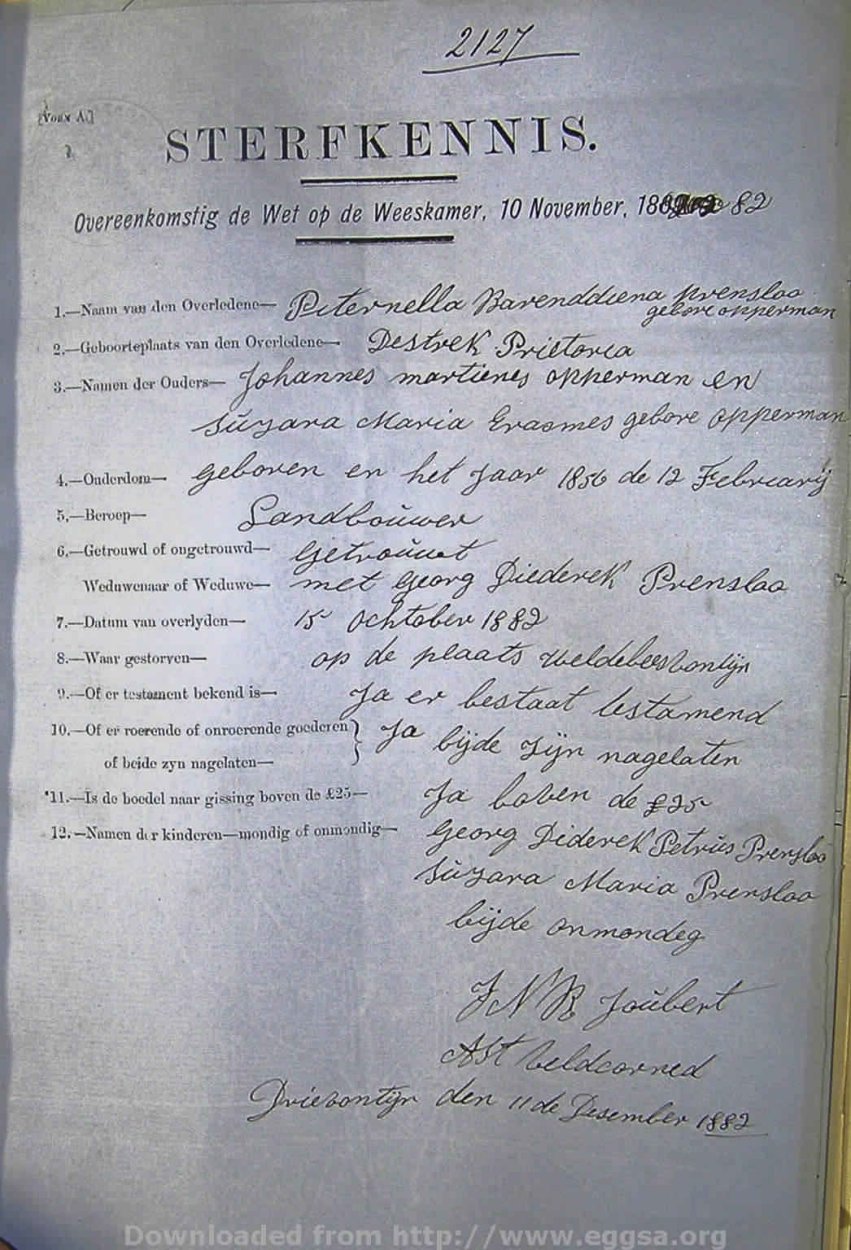 2127
[Form A.]
STERFKENNIS.
Overeenkomstig de Wet op de Weeskamer, 10 November, 18 82
1.—Naam van den Overledene— Peternella Barenddiena Prensloo
gebore opperman
2.—Geboorteplaats van den Overledene— Destrek Prietorea
3.—Namen der Ouders— Johannes martienes opperman en
Suzara Maria Erasmes gebore opperman
4.—Ouderdom— geboren en het jaar 1856 de 12 Februarij
5.—Beroep— Landbouwer
6.—Getrouwd of ongetrouwd— Getrouwt
Weduwenaar of Weduwe— met Georg Diederek Prensloo
7.—Datum van overlyden— 15 ochtober 1882
8.—Waar gestorven— op de plaats weldebeesvontijn
9.—Of er testament bekend is— Ja er bestaat testamend
10.—Of er roerende of onroerende goederen } Ja bijde zijn nagelaten
of beide zyn nagelaten—
11.—Is de boedel naar gissing boven de £25— Ja boven de £25
12.—Namen der kinderen—mondig of onmondig— Georg Diderek Petrus Prensloo
Suzara Maria Prensloo
bijde onmondeg
J N R Joubert
Ast Veldcorned
Drievontyn den 11 de Desember 1882
Downloaded from http://www.eggsa.org